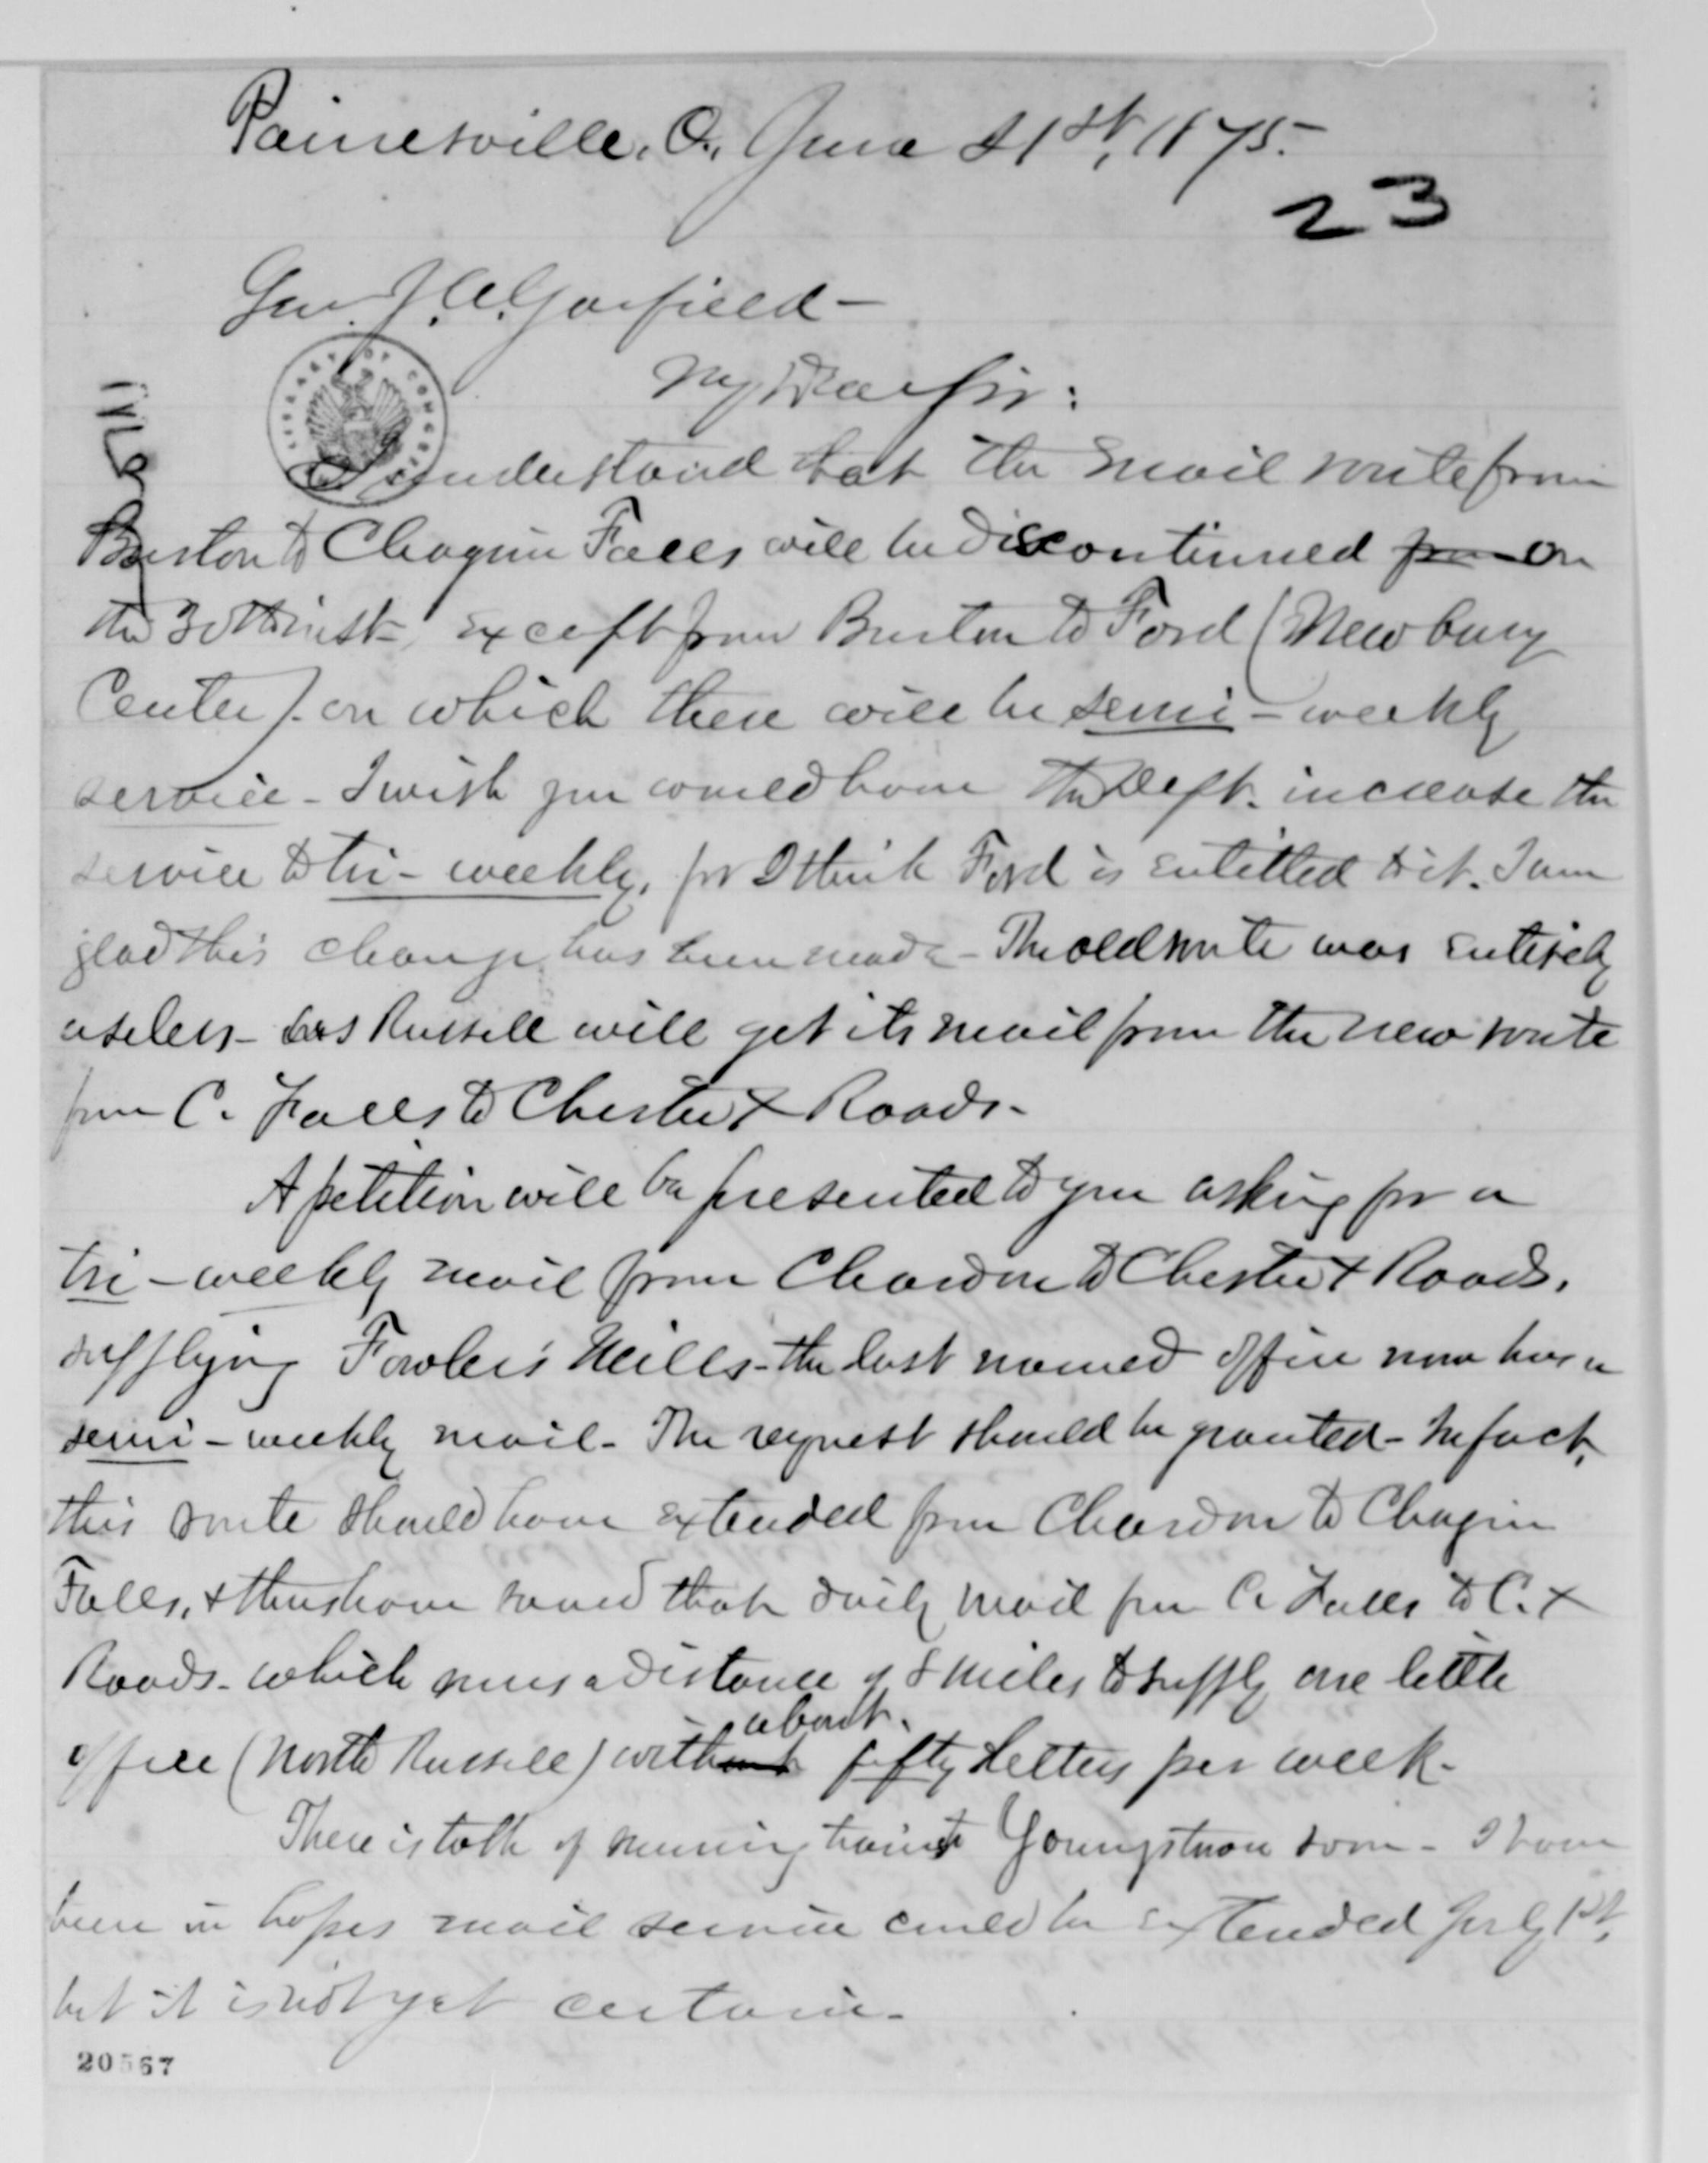 Painesville, O., June 21st, 1875.
23
Gen. J. A. Garfield—
My Dear Sir:
I understand that the mail route from
Burton to Chagrin Falls will be discontinued on
the 30th inst, except from Burton to Ford (Newbury
Center) on which there will be semi-weekly
service - I wish you would have the Dept. increase the
service to tri-weekly, for I think Ford is entitled to it. I am
glad this change has been made - The old route was entirely
useless - as Russell will get its mail from the new route
from C. Falls to Chester X Roads -
A petition will be presented to you asking for a
tri-weekly mail from Chardon to Chester X Roads,
supplying Fowler's Mills - the last named office now has a
semi-weekly mail - The request should be granted - In fact,
this route should have extended from Chardon to Chagrin
Falls, & thus have saved that daily mail from C. Falls to C. X
Roads - which runs a distance of 8 miles to supply one little
office (North Russell) with about fifty letters per week -
There is talk of running trains to Youngstown soon - I have
been in hopes mail service could be extended July 1st,
but it is not yet certain -
20567